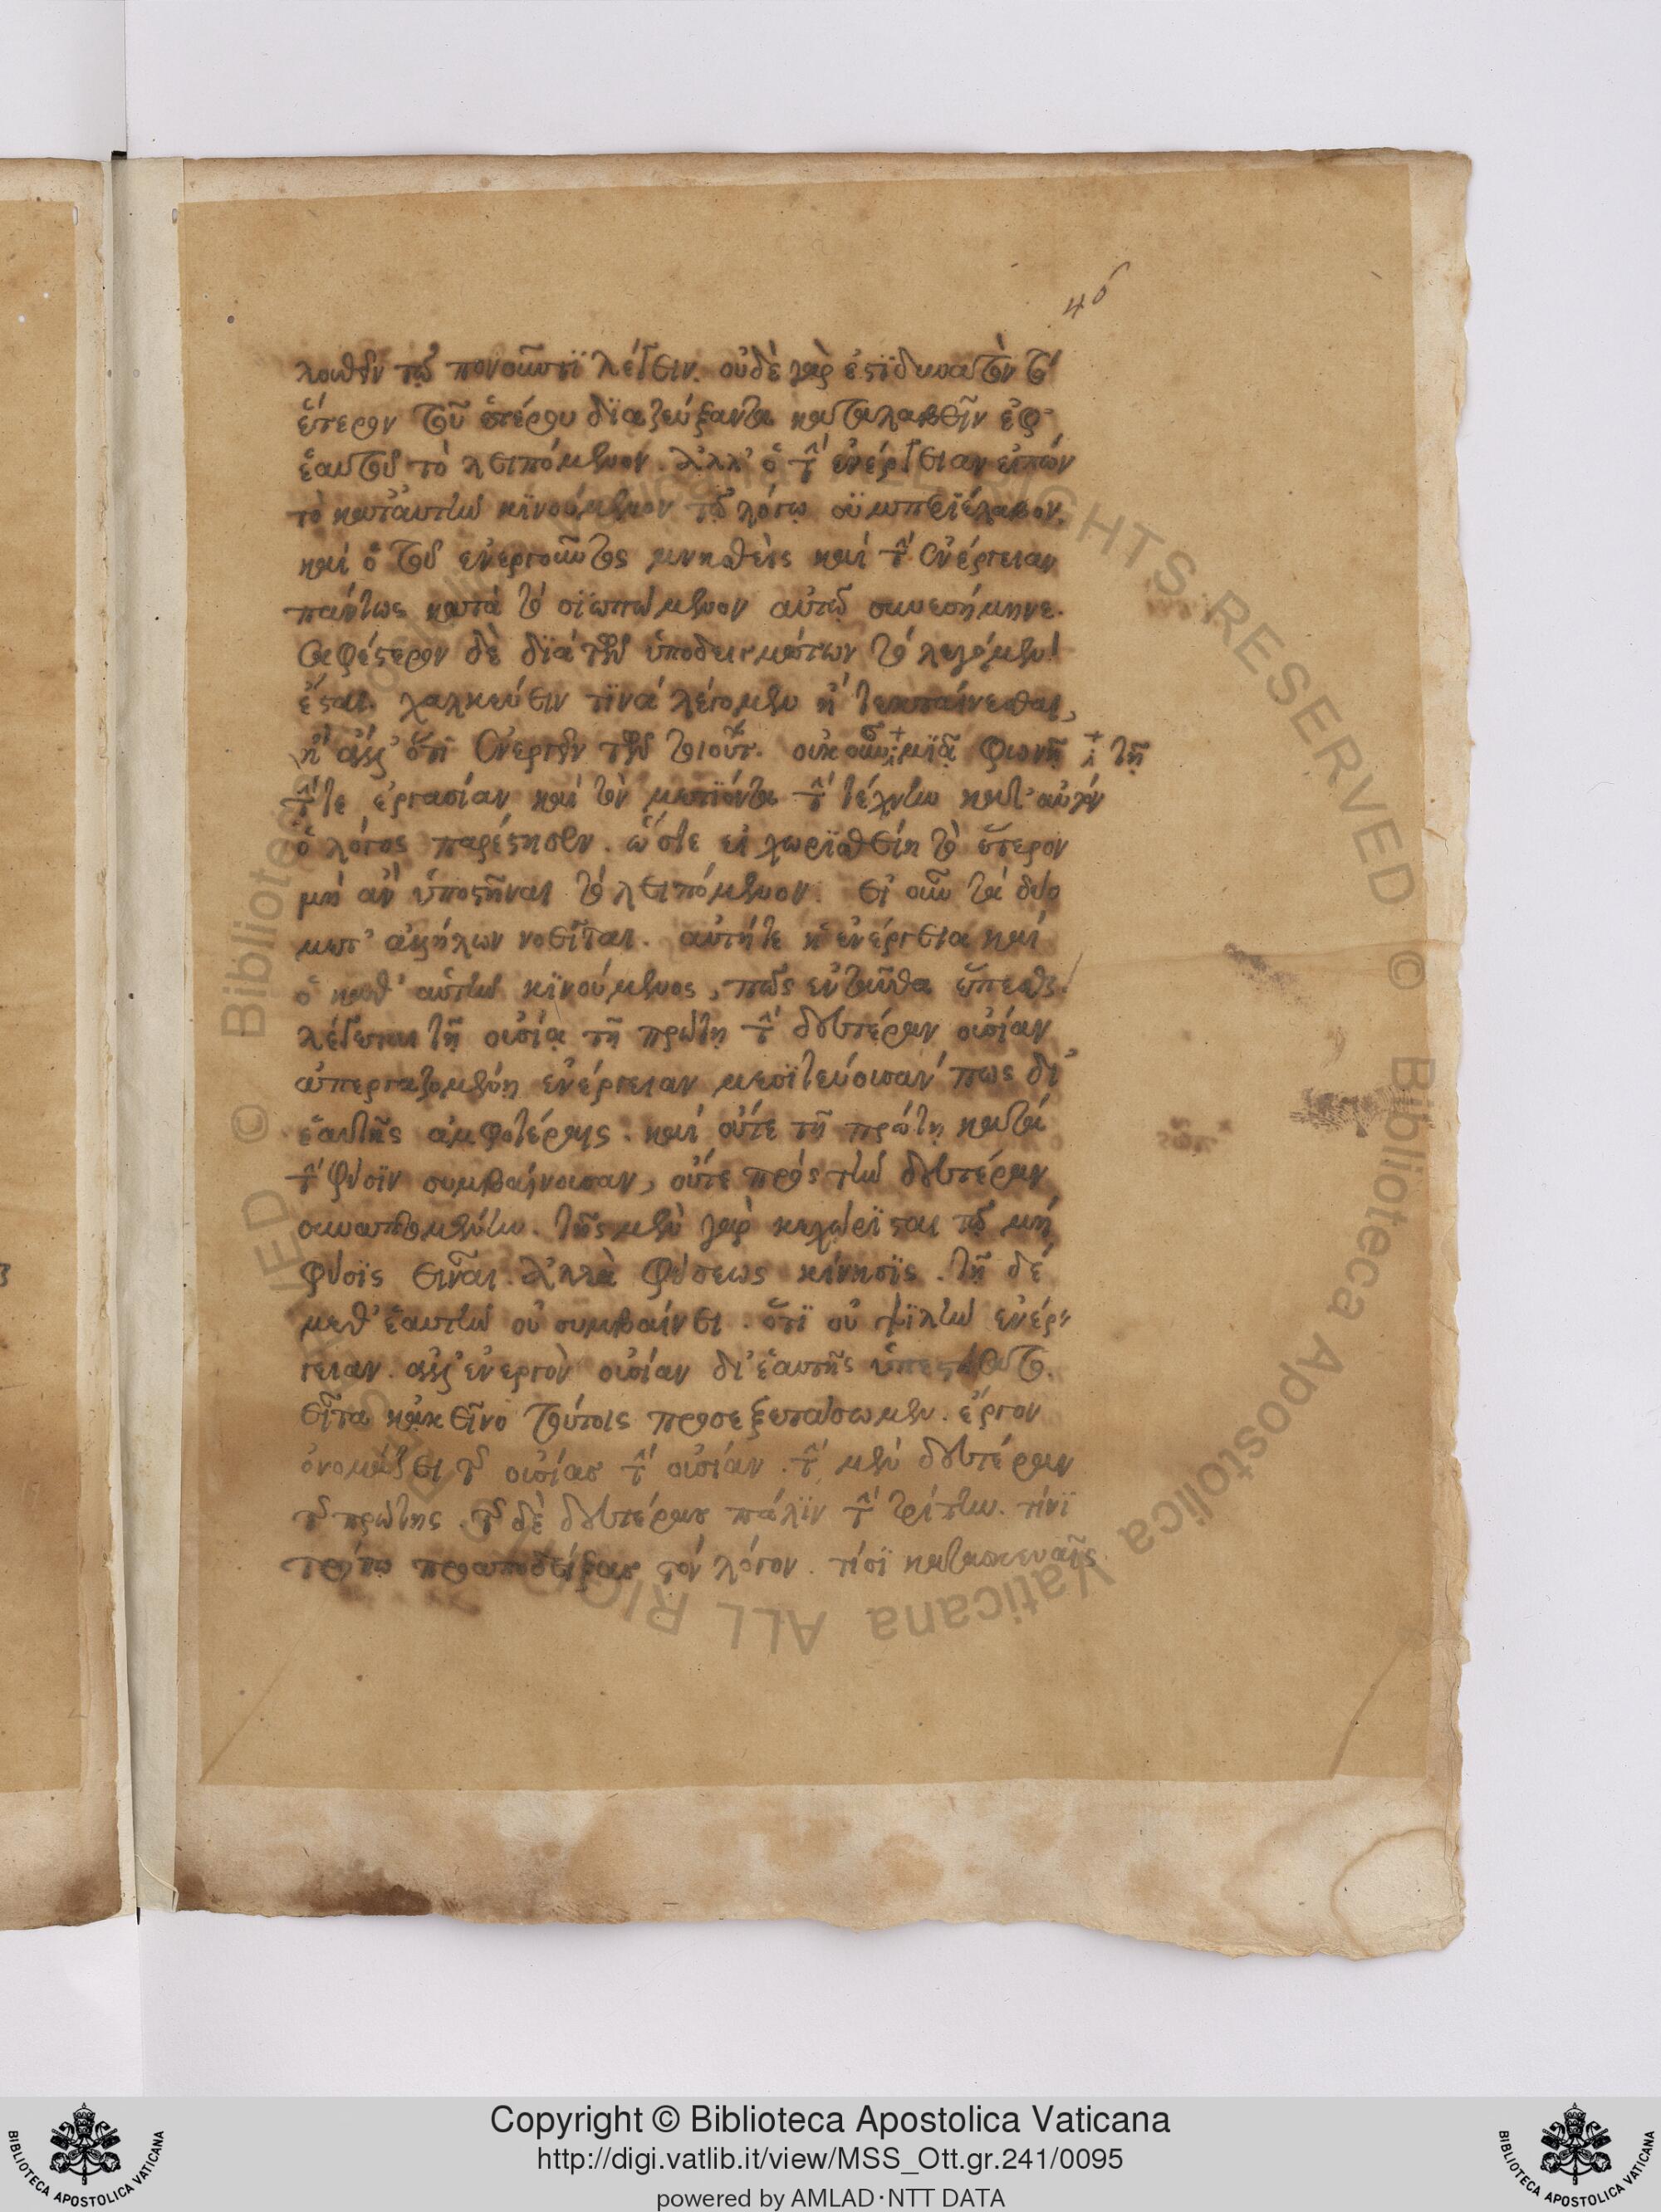 46
λουθεῖν τῷ πονοῦντι λέγειν. οὐδὲ γάρ ἐστι δυνατὸν τὸ
ἕτερον τοῦ ἑτέρου διαζεύξαντα καταλαβεῖν ἐφ'
ἑαυτοῦ τὸ λειπόμενον. ἀλλ' ὁ τὴν ἐνέργειαν εἰπών
τὸ κατ' αὐτὴν κινούμενον τῷ λόγῳ συμπεριέλαβον.
καὶ ὁ τοῦ ἐνεργοῦντος μνησθεὶς καὶ τὴν ἐνέργειαν
πάντως κατὰ τὸ σιωπώμενον αὐτῷ συνεσήμηνε.
σαφέστερον δὲ διὰ τῶν ὑποδειγμάτων τὸ λεγόμενον
ἔσται. χαλκεύειν τινὰ λέγομεν ἢ τεκταίνεσθαι,
ἢ ἄλλ' ὅτι ἐνεργεῖν τῶν τοιούτ. οὐκοῦν μιᾷ φωνῇ τῇ
τήν τε ἐργασίαν καὶ τὸν μετιόντα τὴν τέχνην κατ' αὐτὸν
ὁ λόγος παρέστησεν. ὥστε εἰ χωρισθείη τὸ ἕτερον
μὴ ἂν ὑποστῆναι τὸ λειπόμενον. εἰ οὖν τὰ δύο
μετ' ἀλλήλων νοεῖται. αὐτή τε ἡ ἐνέργεια καὶ
ὁ καθ' αὑτὴν κινούμενος, πῶς ἐνταῦθα ἕπεσθαι
λέγεται τῇ οὐσίᾳ τῇ πρώτῃ τὴν δευτέραν οὐσίαν
ἀπεργαζομένη ἐνέργειαν μεσιτεύουσάν πως δι'
ἑαυτῆς ἀμφοτέραις. καὶ οὔτε τῇ πρώτῃ κατὰ
τὴν φύσιν συμβαίνουσαν, οὔτε πρὸς τὴν δευτέραν
συναπτομένην. τῆς μὲν γὰρ κεχώρισται τῷ μὴ
φύσις εἶναι. ἀλλὰ φύσεως κίνησις. τῇ δὲ
μεθ' ἑαυτὴν οὐ συμβαίνει. ὅτι οὐ ψιλὴν ἐνέρ-
γειαν. ἀλλ' ἐνεργὸν οὐσίαν δι' ἑαυτῆς ὑπεστήσατο.
εἶτα κἀκεῖνο τούτοις προσεξετάσωμεν. ἔργον
ὀνομάζει τῆς οὐσίας τὴν οὐσίαν. τὴν μὲν δευτέραν
τῆς πρώτης. τῆς δὲ δευτέρας πάλιν τὴν τρίτην. τίνι
τρόπῳ προαποδείξας τὸν λόγον. τίσι κατασκευαῖς
Copyright © Biblioteca Apostolica Vaticana
http://digi.vatlib.it/view/MSS_Ott.gr.241/0095
powered by AMLAD·NTT DATA